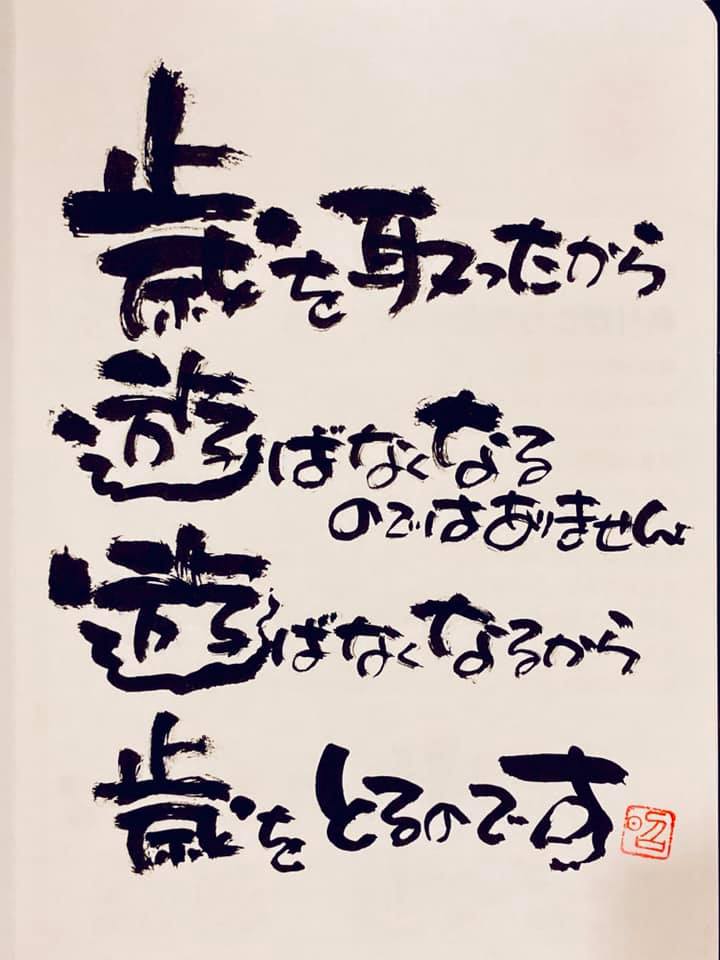 歳を取ったから
遊ばなくなる
のではありません
遊ばなくなるから
歳をとるのです